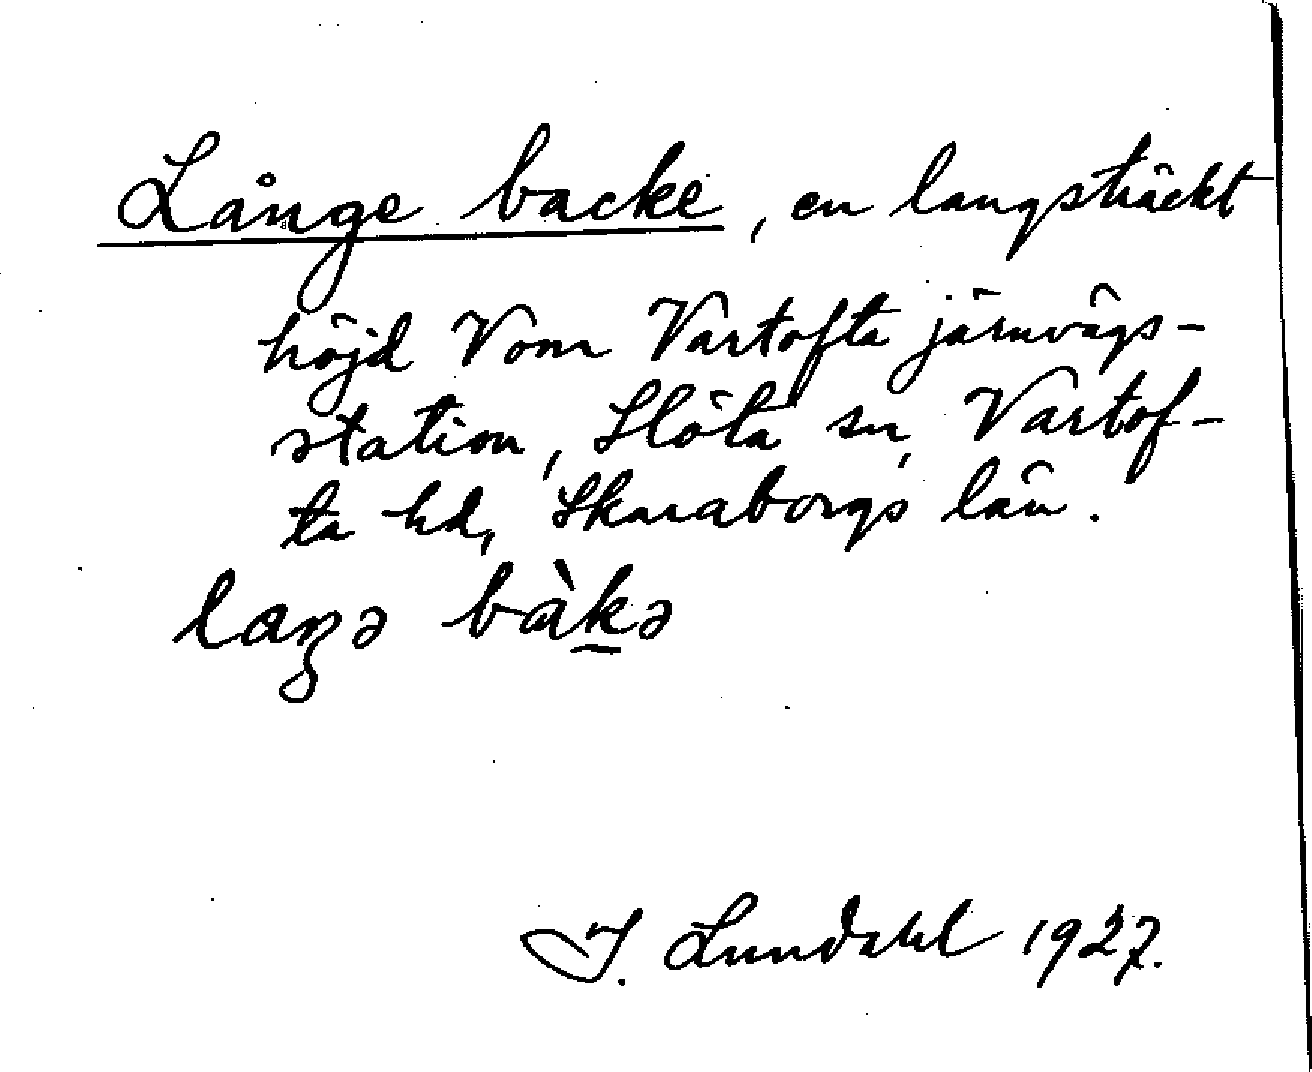 Långe backe, en langsträckt
höjd V om Vartofta järnvägs-
station, Slöta sn, Vartof-
ta hd, Skaraborgs län.
laŋə bàkə
I. Lundahl 1927.